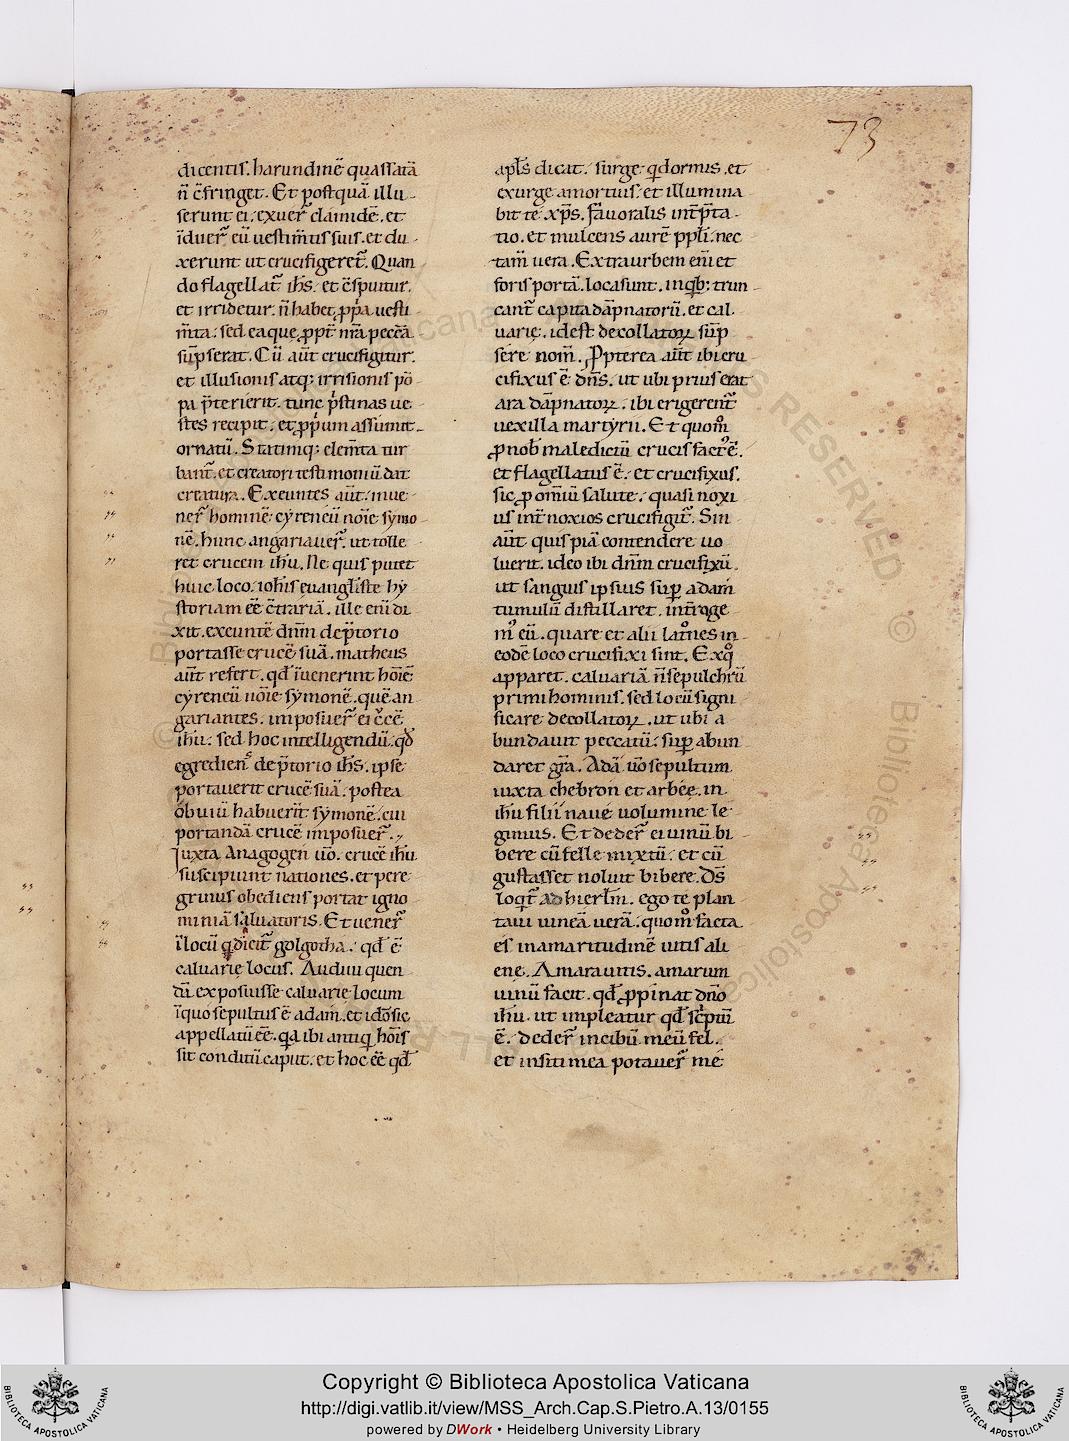 73
dicentis. harundinē quassatā
n̄ c̄fringet. Et postquā illu
serunt ei. exuer̄ clamidē. et
īduer̄ eū uestim̄tis suis. et du
xerunt ut crucifigeret̄. Quan
do flagellat̄ ih̄s. et c̄spuitur.
et irridetur. n̄ habet ꝓp̄a uesti
m̄ta. sed ea que ꝓpt̄ nr̄a peccā
sūpserat. Cū aūt crucifigitur.
et illusionis atq; irrisionis pō
pa p̄terierit. tunc p̓stinas ue
stes recipit. et ꝓp̓um assumit
ornatū. Statimq; elem̄ta tur
bant̄. et creatori testimoniū dat
creatura. Exeuntes aūt. inue
ner̄ hominē cyreneū nōīe symo
nē. hunc angariauer̄. ut tolle
ret crucem ih̄u. Ne quis putet
huic loco. ioh̄is euangl̄iste hy
storiam eē c̄trariā. ille enī di
xit. exeuntē dn̄m de p̄torio
portasse crucē suā. matheus
aūt refert. qđ īuenerint hoīēm
cyreneū nōīe symonē. quē an
gariantes. imposuer̄ ei c̓cē
ih̄u. sed hoc intelligendū. qđ
egredien̄s de p̄torio ih̄s. ipse
portauerit crucē suā. postea
obuiū habuerīt symonē. cui
portandā crucē imposuer̄.
Iuxta Anagogen ūo. crucē ih̄u
suscipiunt nationes. et pere
grinus obediens portat igno
miniā saluatoris. Et uener̄
ī locū q̓ dicit̄ golgotha. qđ ē
caluarię locus. Audiui quen
dā exposuisse caluarię locum
ī quo sepultus ē adam. et idō sic
appellatū eē. q̓a ibi antiq̓ hoīs
sit conditū caput. et hoc eē qđ
apl̄s dicat. surge q̓ dormis. et
exurge a mortuis. et illumina
bit te xp̄s. Fauoralis int̄p̄ta
tio. et mulcens aurē ppl̄i. nec
tam̄ uera. Extra urbem enī et
foris portā. loca sunt. in quib; trun
cant̄ capita dāpnatorū. et cal
uarię. id est decollatoꝝ sūp
sere nom̄. Propterea aūt ibi cru
cifixus ē dn̄s. ut ubi prius erat
ara dāpnatoꝝ. ibi erigerent̄
uexilla martyrii. Et quom̊
ꝓ nob̄ maledictū crucis fact̓ ē.
et flagellatus ē. et crucifixus.
sic ꝓ omīū salute. quasi noxi
us int̄ noxios crucifigit̄. Sin
aūt quispiā contendere uo
luerit. ideo ibi dn̄m crucifixū.
ut sanguis ipsius sup̄ adam
tumulū distillaret. int̄roge
m̓ eū. quare et alii lat̊nes in
eodē loco crucifixi sint. Ex q̊
apparet. caluariā n̄ sepulchrū
primi hominis. sed locū signi
ficare decollatoꝝ. ut ubi a
bundauit peccatū. sup̄ abun
daret gr̄a. Adā ūo sepultum
iuxta chebron et arbeę. in
ih̄u filii naue uolumine le
gimus. Et deder̄ ei uinū bi
bere cū felle mixtū. et cū
gustasset noluit bibere. D̄s
loqt̄ ad hierl̄m. ego te plan
taui uineā uerā. quom̊ facta
es in amaritudinē uitis ali
ene. Amara uitis. amarum
uinū facit. qđ ꝓpinat dn̄o
ih̄u. ut impleatur qđ sc̓ptū
ē. deder̄ in cibū meū fel.
et in siti mea potauer̄ me
Copyright © Biblioteca Apostolica Vaticana
http://digi.vatlib.it/view/MSS_Arch.Cap.S.Pietro.A.13/0155
powered by DWork • Heidelberg University Library
BIBLIOTECA APOSTOLICA VATICANA
BIBLIOTECA APOSTOLICA VATICANA